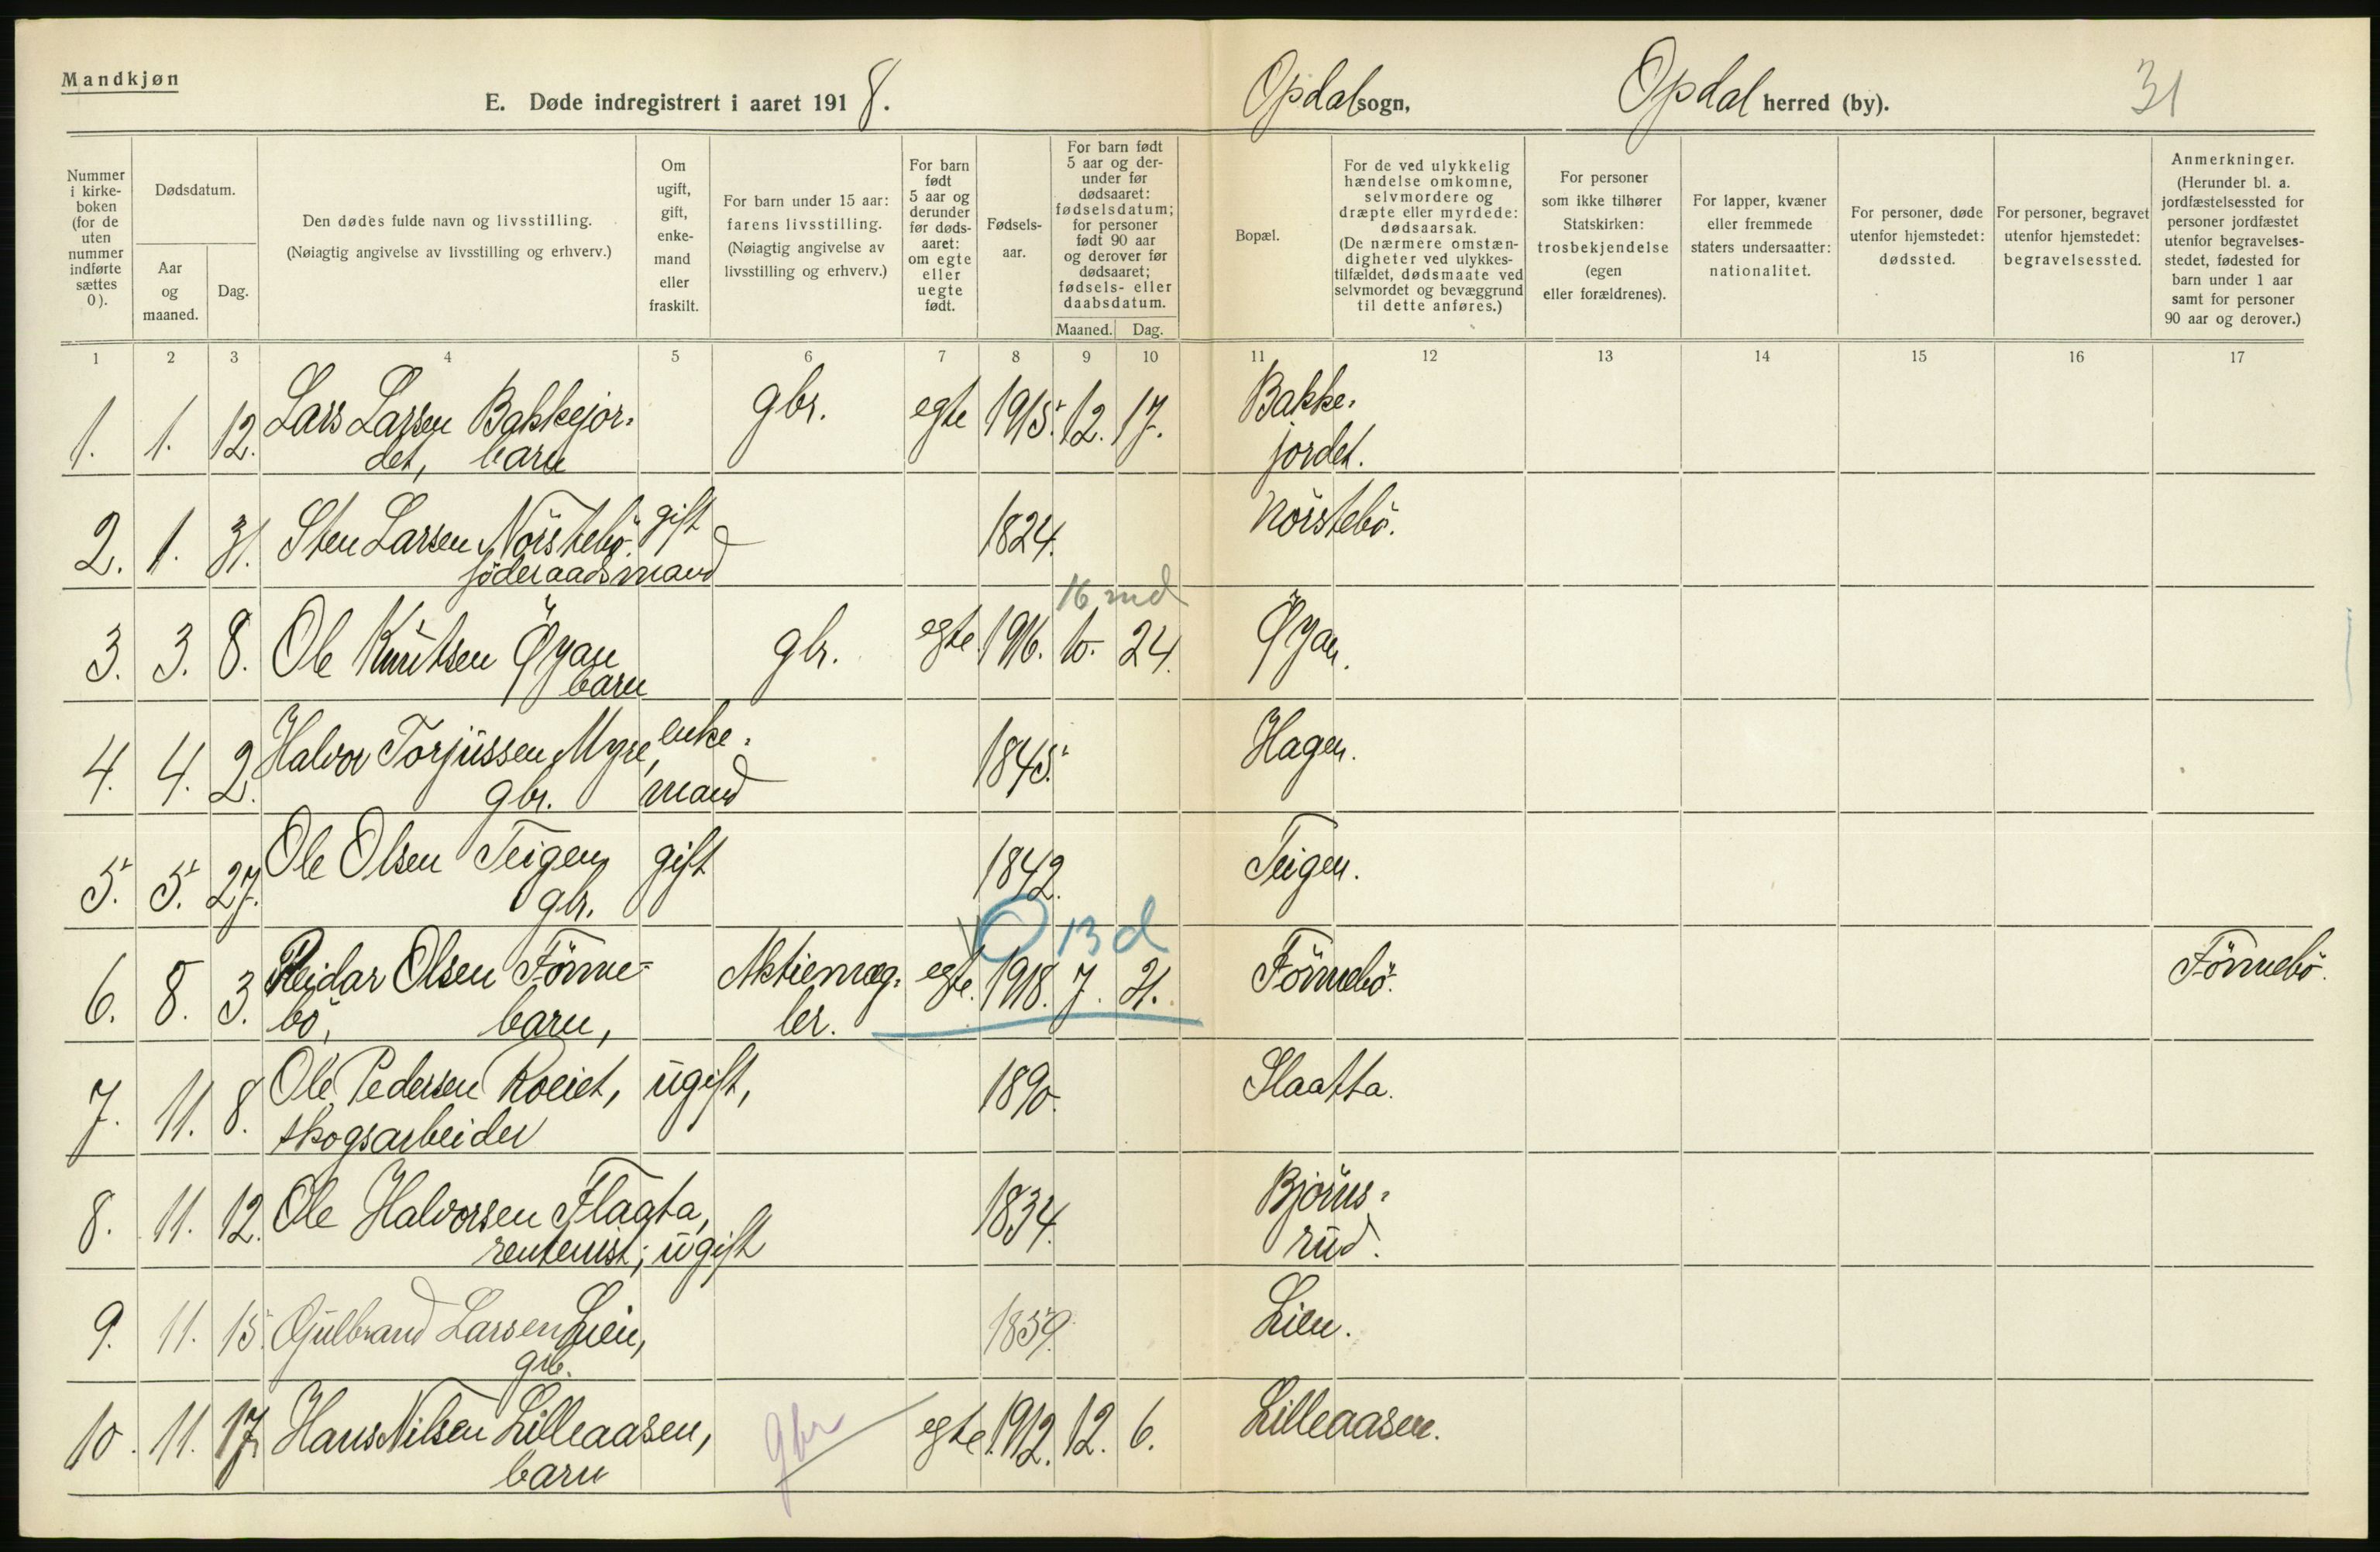 Mandkjøn
E. Døde indregistrert i aaret 1918. Opdal sogn, Opdal herred (by). 31
Nummer i kirkeboken (for de uten nummer indførte sættes 0).
Dødsdatum.
Aar og maaned.
Dag.
Den dødes fulde navn og livsstilling.
(Nøiagtig angivelse av livsstilling og erhverv.)
Om ugift, gift, enkemand eller fraskilt.
For barn under 15 aar: farens livsstilling.
(Nøiagtig angivelse av livsstilling og erhverv.)
For barn født 5 aar og derunder før dødsaaret: om egte eller uegte født.
Fødselsaar.
For barn født 5 aar og derunder før dødsaaret: fødselsdatum; for personer født 90 aar og derover før dødsaaret; fødsels- eller daabsdatum.
Maaned. Dag.
Bopæl.
For de ved ulykkelig hændelse omkomne, selvmordere og dræpte eller myrdede: dødsaarsak.
(De nærmere omstændigheter ved ulykkestilfældet, dødsmaate ved selvmordet og bevæggrund til dette anføres.)
For personer som ikke tilhører Statskirken: trosbekjendelse (egen eller forældrenes).
For lapper, kvæner eller fremmede staters undersaatter: nationalitet.
For personer, døde utenfor hjemstedet: dødssted.
For personer, begravet utenfor hjemstedet: begravelsessted.
Anmerkninger.
(Herunder bl. a. jordfæstelsessted for personer jordfæstet utenfor begravelsesstedet, fødested for barn under 1 aar samt for personer 90 aar og derover.)
1 2 3 4 5 6 7 8 9 10 11 12 13 14 15 16 17
1. 1. 12. Lars Larsen Bakkejor- gbr. egte 1915. 12. 17. Bakke-
det, barn jordet.
2. 1. 31. Sten Larsen Nörstebö. gift 1824. Nörstebö.
föderaadsmand
16 md
3. 3. 8. Ole Knutsen Øyan gbr. egte 1916. 10. 24. Øyan.
barn
4. 4. 2. Halvor Torjussen Myre, enke- 1845. Hagen.
gbr. mand
5. 5. 27. Ole Olsen Teigen gift 1842. Teigen.
gbr.
0 13 d
6. 8. 3. Reidar Olsen Fönne- Aktiemæg- egte. 1918. 7. 21. Fönnebö. Fönnebö.
bö, barn, ler.
7. 11. 8. Ole Pedersen Roeiet, ugift, 1890. Slaatta.
skogsarbeider
8. 11. 12. Ole Halvorsen Flaata, 1834. Björns-
rentenist; ugift rud.
9. 11. 15. Gulbrand Larsen Lien, 1859. Lien.
gbr.
10. 11. 17. Hans Nilsen Lilleaasen, gbr egte 1912. 12. 6. Lilleaasen.
barn